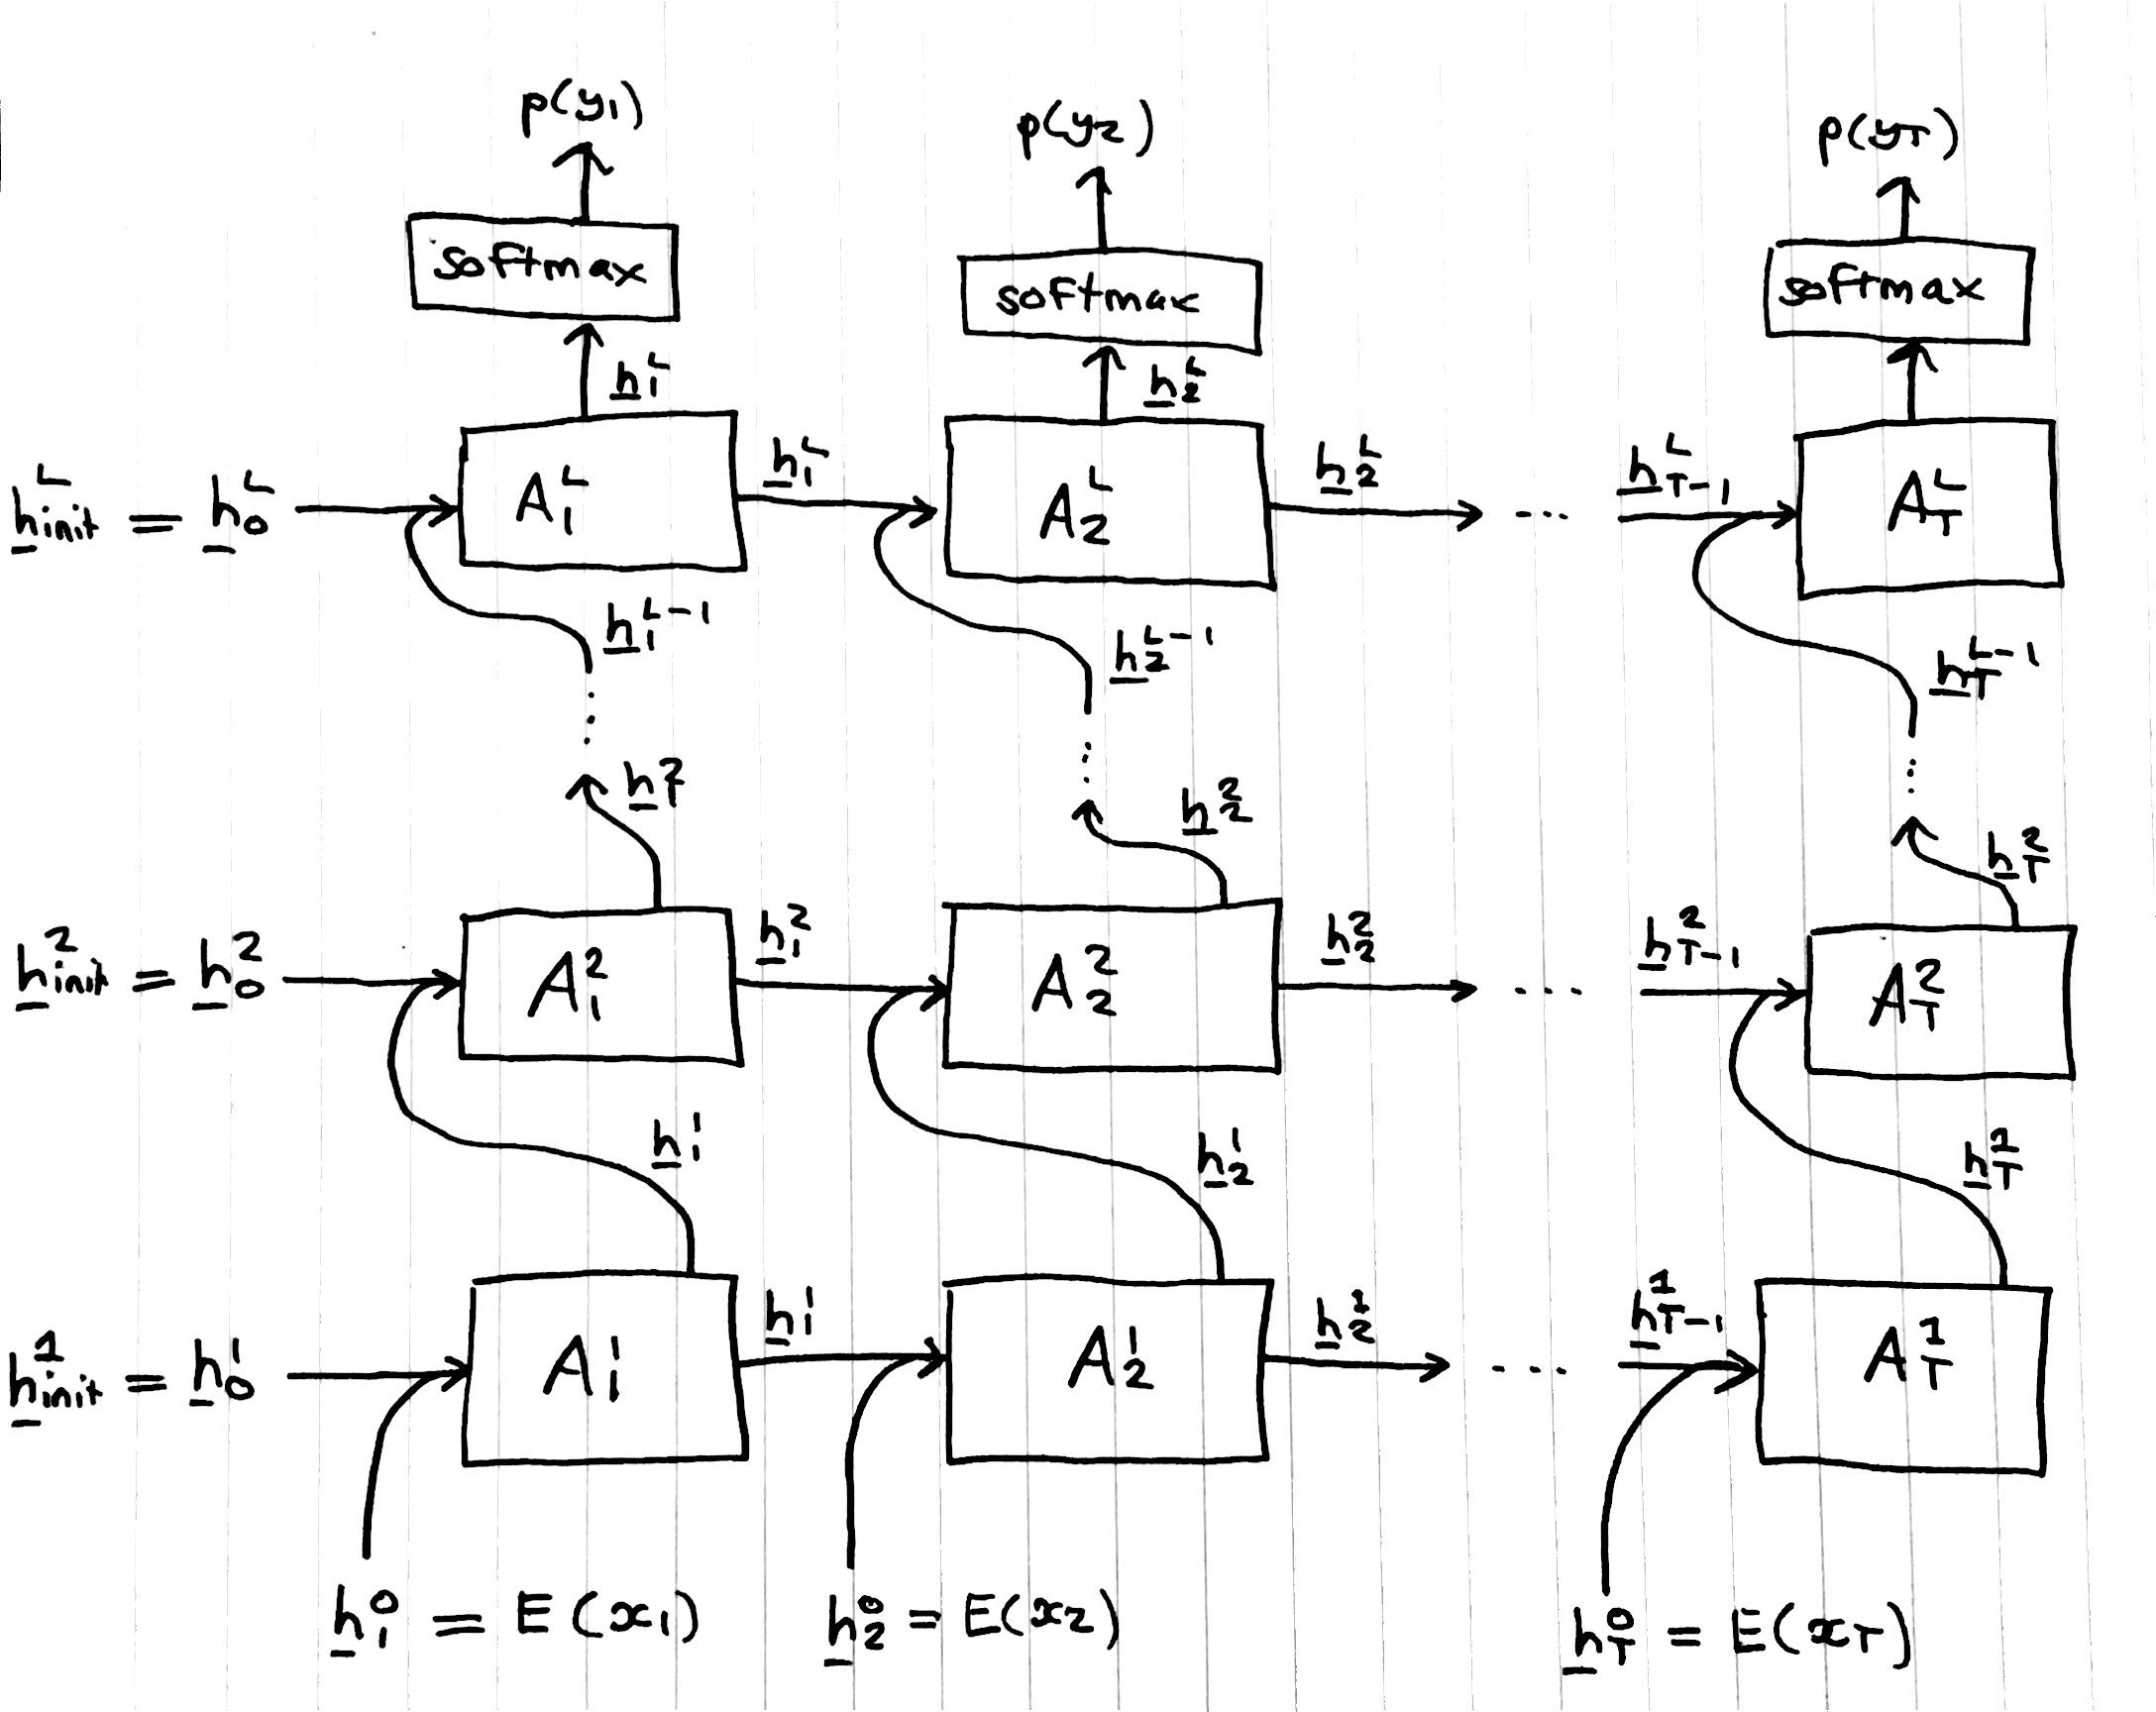 p(y₁) p(y₂) p(y_T)
softmax softmax softmax
h₁ᴸ h₂ᴸ
h_init^L = h₀^L A₁^L h₁^L A₂^L h₂^L ... h_{T-1}^L A_T^L
h₁^{L-1} h₂^{L-1} h_T^{L-1}
h₁² h₂² h_T²
h_init^2 = h₀² A₁² h₁² A₂² h₂² ... h_{T-1}^2 A_T²
h₁¹ h₂¹ h_T¹
h_init^1 = h₀¹ A₁¹ h₁¹ A₂¹ h₂¹ ... h_{T-1}^1 A_T¹
h₁⁰ = E(x₁) h₂⁰ = E(x₂) h_T⁰ = E(x_T)